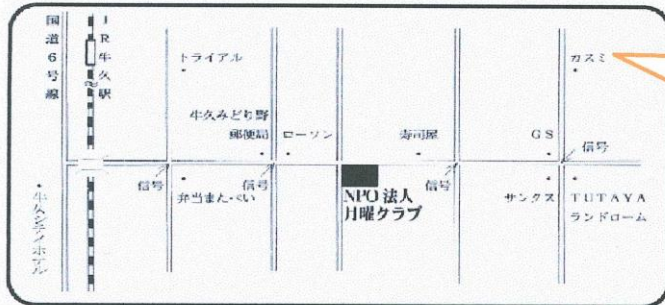 国道6号線
JR牛久駅
トライアル
カスミ
牛久みどり野
郵便局
ローソン
寿司屋
GS
信号
信号
信号
信号
弁当またべい
NPO法人
月曜クラブ
サンクス
TUTAYA
ランドローム
牛久シティホテル